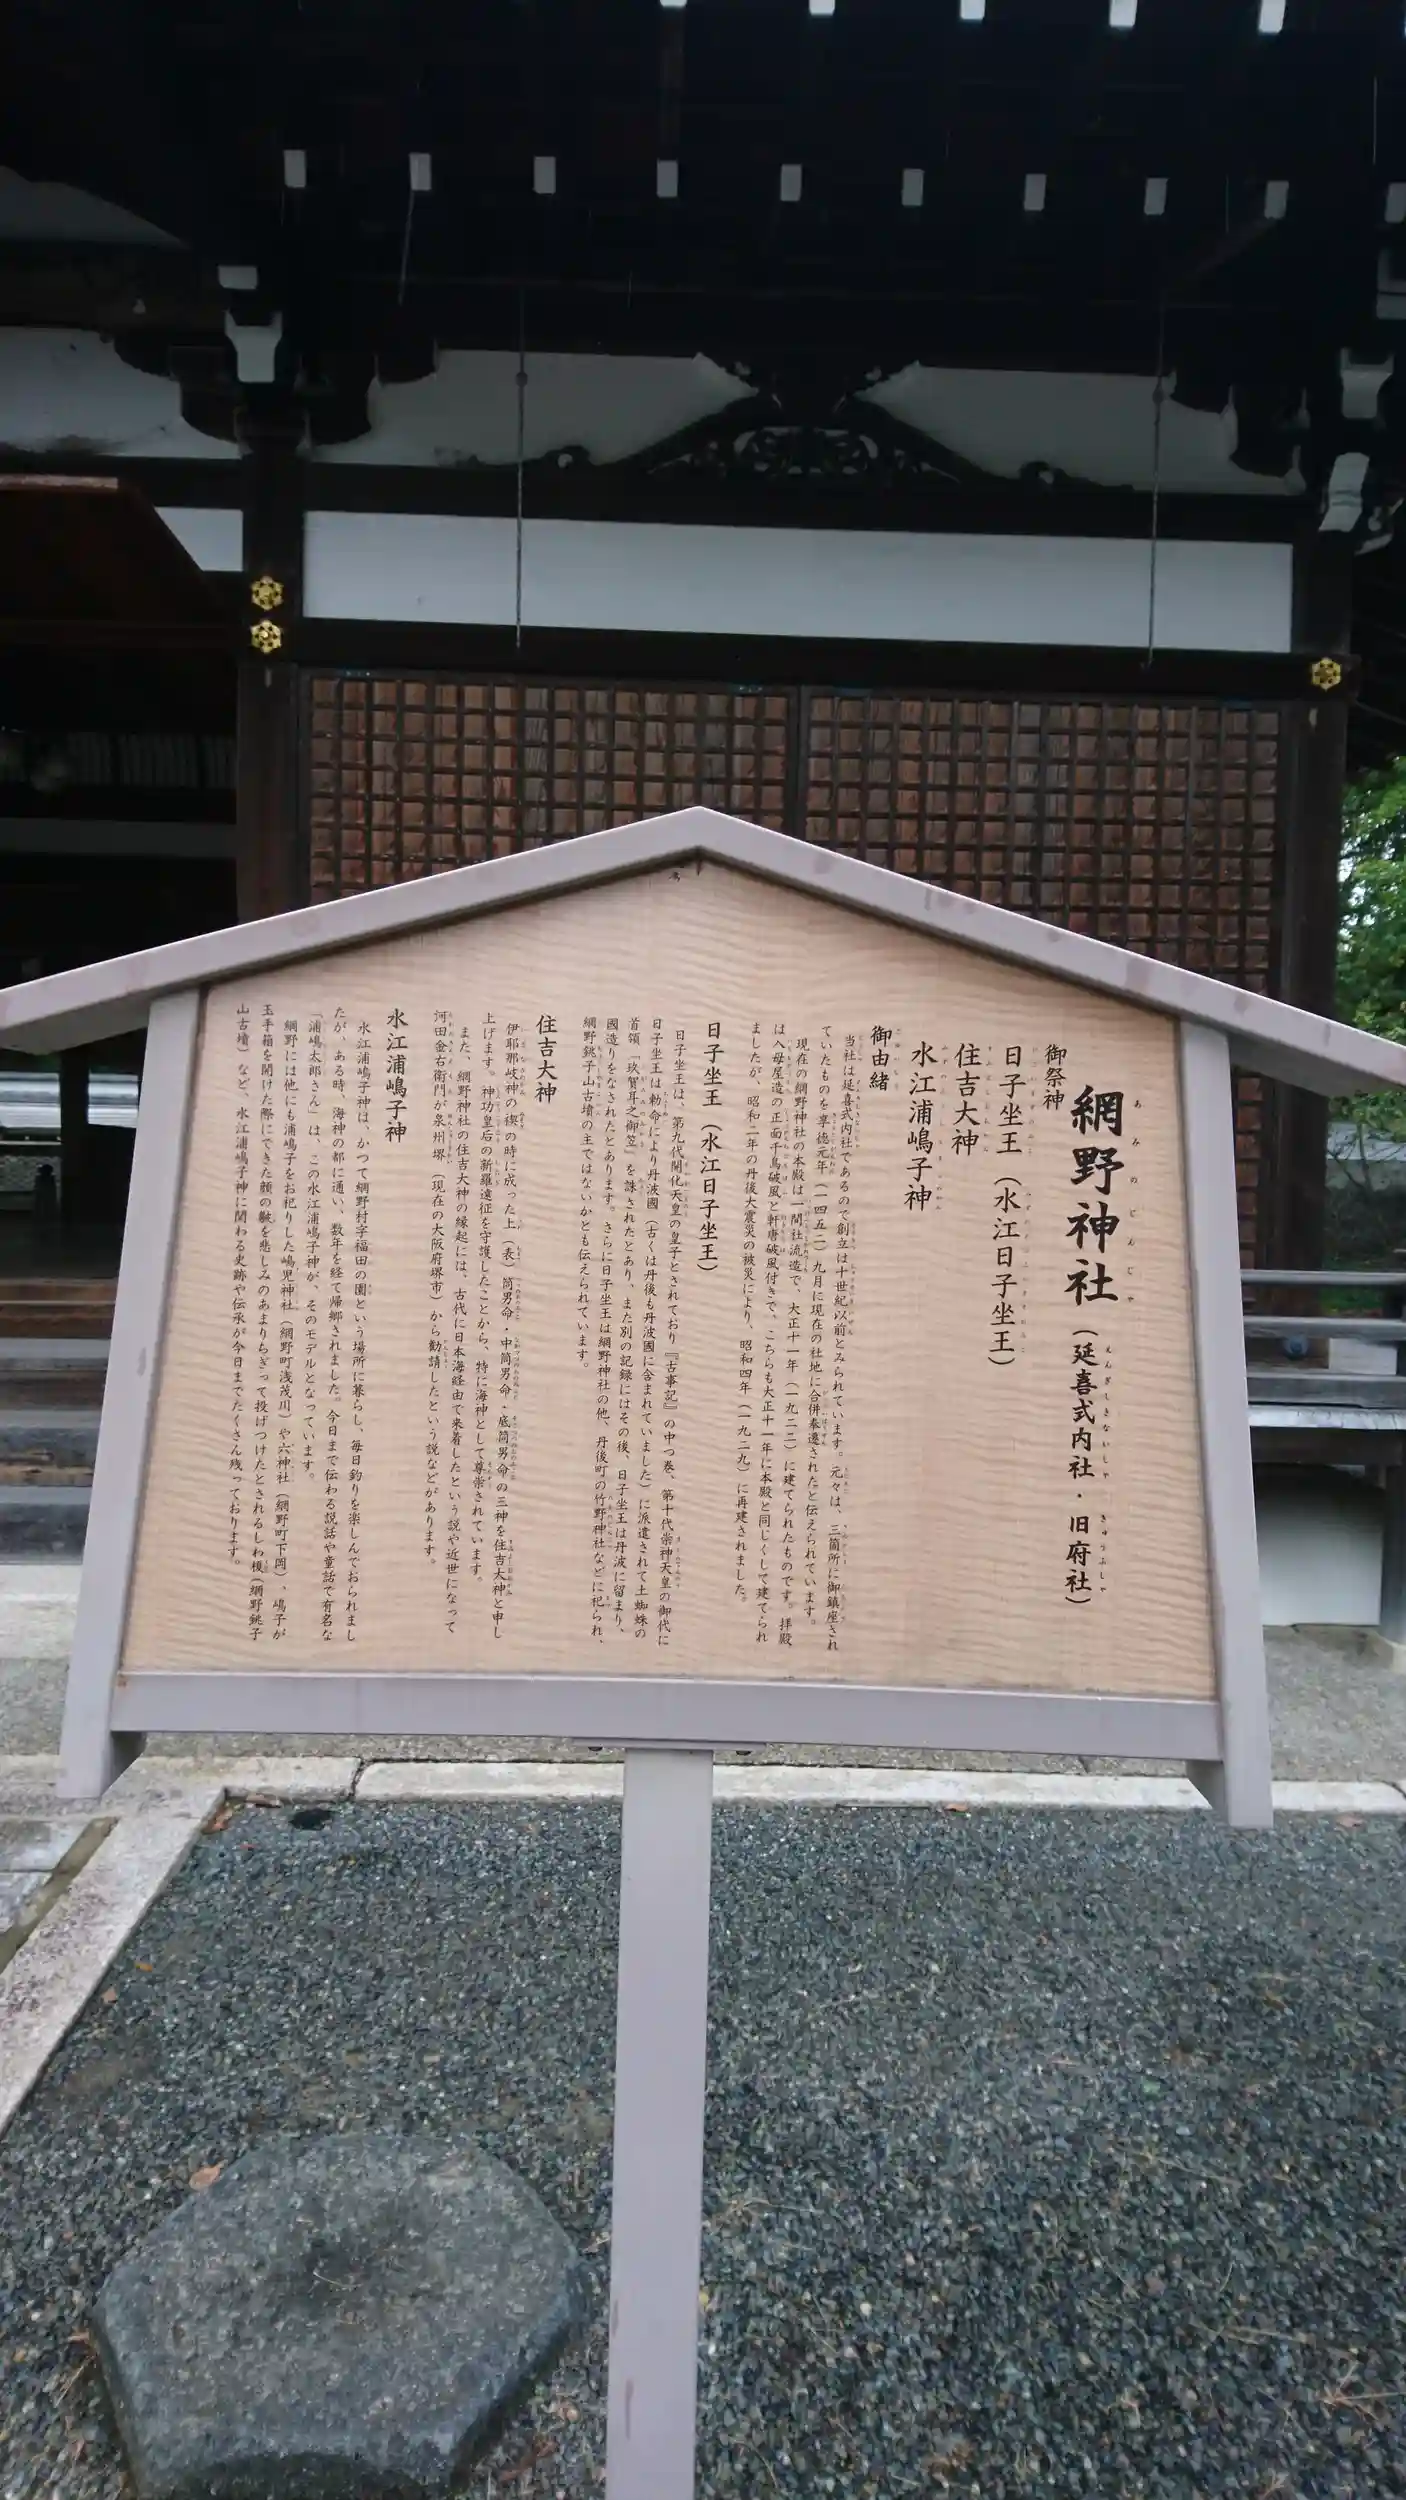 網野神社（延喜式内社・旧府社）
御祭神
日子坐王（水江日子坐王）
住吉大神
水江浦嶋子神
御由緒
当社は延喜式内社であるので創立は十世紀以前とみられています。元々は、三箇所に御鎮座され
ていたものを享徳元年（一四五二）九月に現在の社地に合併奉遷されたと伝えられています。
現在の網野神社の本殿は一間社流造で、大正十一年（一九二二）に建てられたものです。拝殿
は入母屋造の正面千鳥破風と軒唐破風付きで、こちらも大正十一年に本殿と同じくして建てられ
ましたが、昭和二年の丹後大震災の被災により、昭和四年（一九二九）に再建されました。
日子坐王（水江日子坐王）
日子坐王は、第九代開化天皇の皇子とされており『古事記』の中つ巻、第十代崇神天皇の御代に
日子坐王は勅命により丹波國（古くは丹後も丹波國に含まれていました）に派遣されて土蜘蛛の
首領「玖賀耳之御笠」を誅されたとあり、また別の記録にはその後、日子坐王は丹波に留まり、
國造りをなされたとあります。さらに日子坐王は網野神社の他、丹後町の竹野神社などに祀られ、
網野銚子山古墳の主ではないかとも伝えられています。
住吉大神
伊耶那岐神の禊の時に成った上（表）筒男命・中筒男命・底筒男命の三神を住吉大神と申し
上げます。神功皇后の新羅遠征を守護したことから、特に海神として尊崇されています。
また、網野神社の住吉大神の縁起には、古代に日本海経由で来着したという説や近世になって
河田金右衛門が泉州堺（現在の大阪府堺市）から勧請したという説などがあります。
水江浦嶋子神
水江浦嶋子神は、かつて網野村字福田の園という場所に暮らし、毎日釣りを楽しんでおられまし
たが、ある時、海神の都に通い、数年を経て帰郷されました。今日まで伝わる説話や童話で有名な
「浦嶋太郎さん」は、この水江浦嶋子神が、そのモデルとなっています。
網野には他にも浦嶋子をお祀りした嶋児神社（網野町浅茂川）や六神社（網野町下岡）、嶋子が
玉手箱を開けた際にできた顔の皺を悲しみのあまりちぎって投げつけたとされるしわ榎（網野銚子
山古墳）など、水江浦嶋子神に関わる史跡や伝承が今日までたくさん残っております。